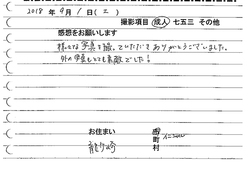 2018年 9月 1日(土)
撮影項目 成人 七五三 その他
感想をお願いします
様々な写真を撮っていただきありがとうございました。
外の写真もとても素敵でした!
お住まい
龍ケ崎
市
町
村